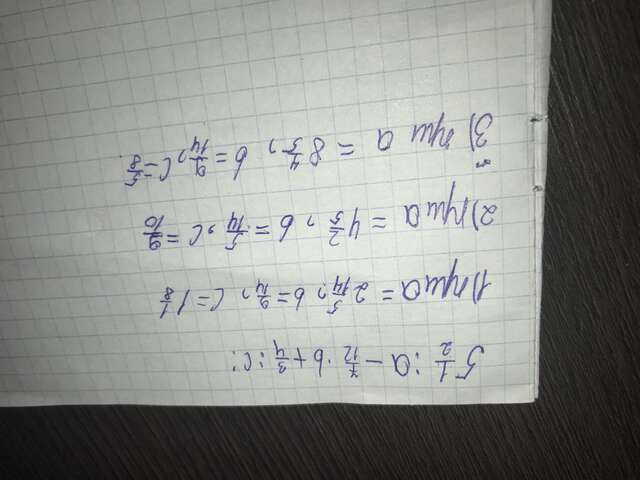 5 1/2 : a - 7/12 · b + 3/4 : c:
1) при a = 2 5/14, b = 9/14, c = 1 1/8
2) при a = 4 2/5, b = 5/14, c = 9/10
3) при a = 8 4/5, b = 9/14, c = 5/8.